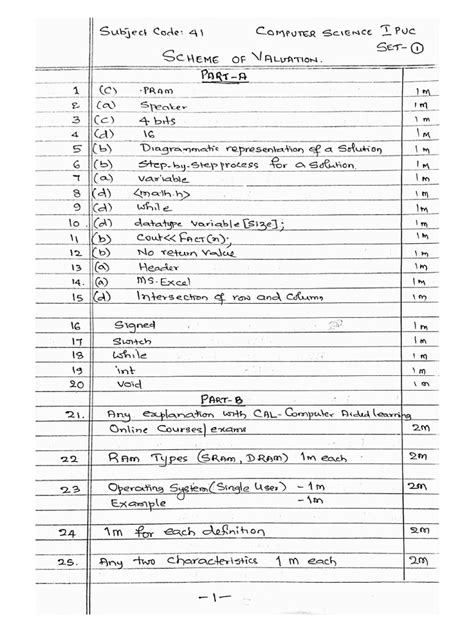 Subject Code: 41 COMPUTER SCIENCE I PUC
SET-①
SCHEME OF VALUATION.
PART-A
1 (C) PRAM 1m
2 (a) Speaker 1m
3 (c) 4 bits 1m
4 (d) 16 1m
5 (b) Diagrammatic representation of a Solution 1m
6 (b) Step-by-step process for a Solution. 1m
7 (a) variable 1m
8 (d) <math.h> 1m
9 (d) while 1m
10. (d) datatype variable [size]; 1m
11 (b) Cout<< FACT(n); 1m
12 (b) No return value 1m
13 (a) Header 1m
14. (a) MS-Excel 1m
15 (d) Intersection of row and Column 1m
16 Signed 1m
17 Switch 1m
18 While 1m
19 int 1m
20 void 1m
PART-B
21. Any explanation with CAL-Computer Aided learning
Online Courses/exams 2m
22 RAM Types (SRAM, DRAM) 1m each 2m
23 Operating System (Single User) - 1m 2m
Example - 1m
24 1m for each definition 2m
25. Any two characteristics 1m each 2m
-1-